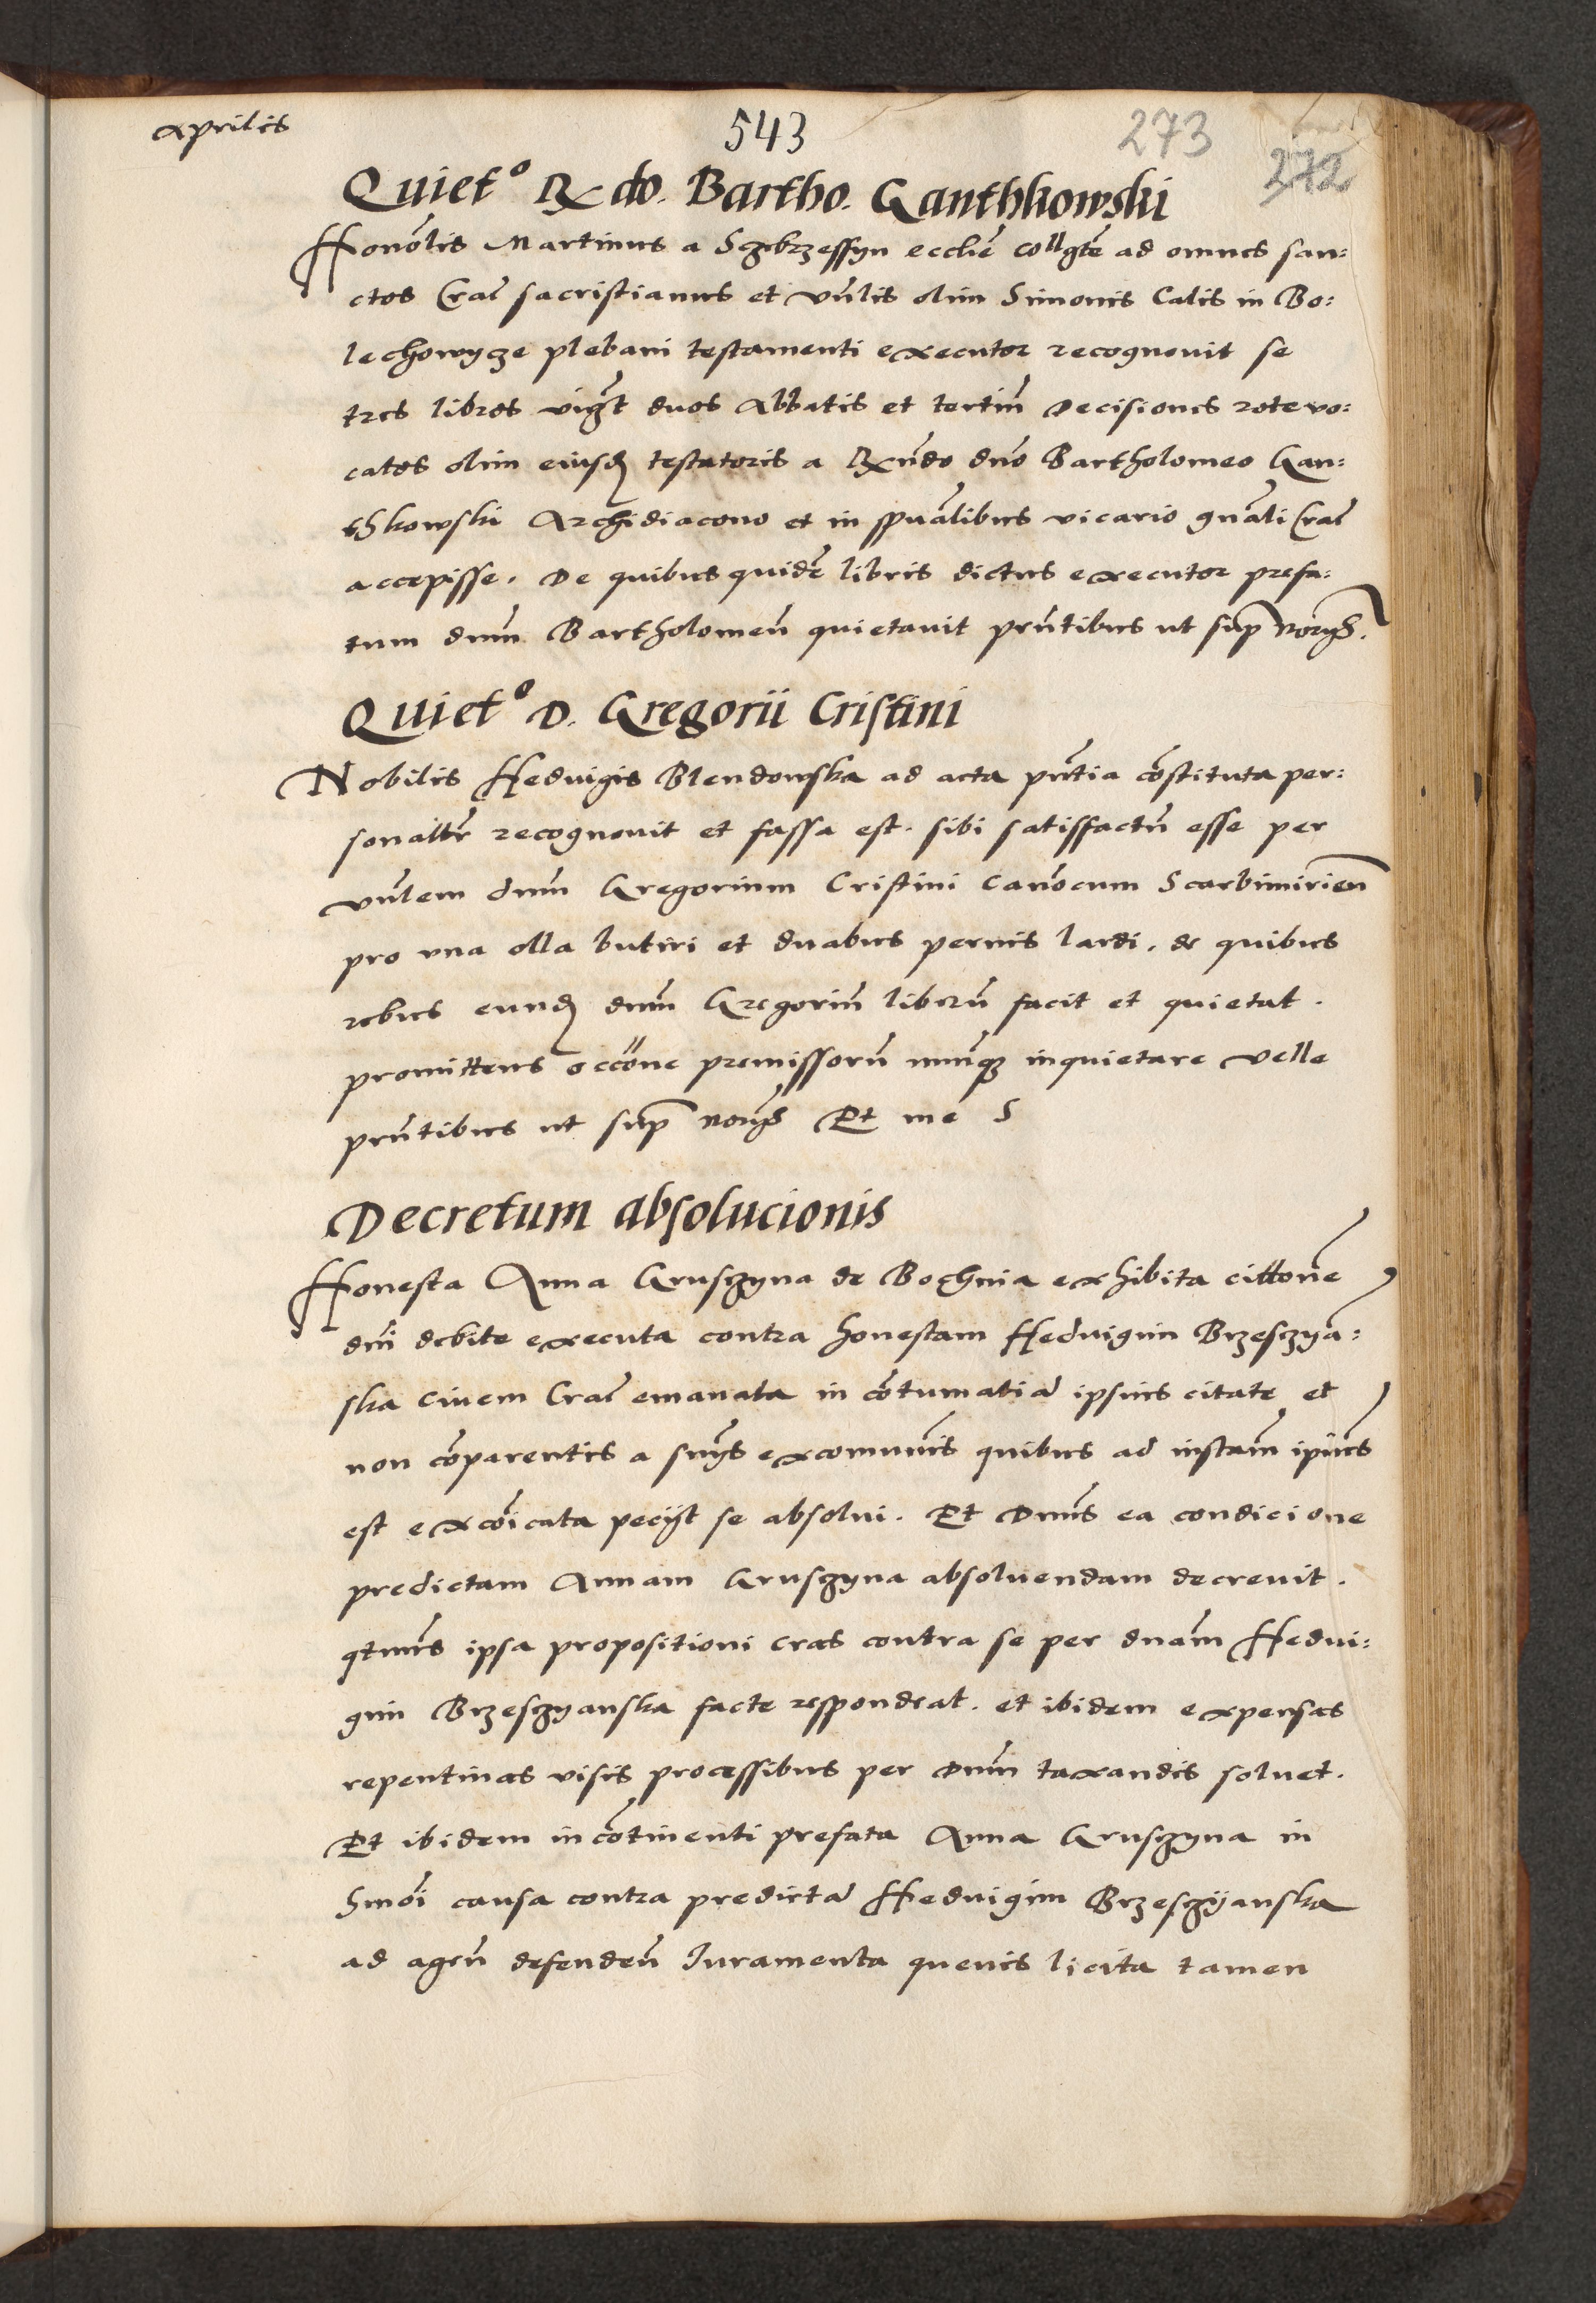 Aprilis
543
273
272
Quiet° Rdo. Bartho. Ganthkowski
Honōlis Martinus a Sczebrzessyn ecclie collgte ad omnes san:
ctos Crac sacristianus et vnlis olim Simonis Calis in Bo:
lechowycze plebani testamenti executor recognovit se
tres libros duos Abbatis et tertiū Decisiones rote vo:
catos olim eiusd testatoris a Rndo dno Bartholomeo Gan:
thkowski Archidiacono et in spualibus vicario gnali Crac
accepisse. De quibus quidē libris dictus executor prefa:
tum dnm Bartholomeū quietavit prntibus ut sup
Quiet° D. Gregorii Cristini
Nobilis Hedvigis Blendowska ad acta pntia cōstituta per:
sonaltr recognovit et fassa est. sibi satisfactū esse per
vnlem dnm Gregorium Cristini canōcum Scarbimirien
pro vna olla butiri et duabus pernis lardi. de quibus
rebus eund dnm Gregoriū liberū facit et quietat.
promittens occōne premissorū nunq inquietare velle
prntibus ut sup Et me S
Decretum absolucionis
Honesta Anna Gruszyna de Bochnia exhibita cittone
dni debite executa contra honestam Hedvigim Brzesczyā:
ska civem Crac emanata in cōtumatiā ipsius citate et
non cōparentis a snys excomunis quibus ad instam ipius
est excōicata peciit se absolvi. Et Dnus ea condicione
predictam Annam Grusczyna absolvendam decrevit.
qtnus ipsa propositioni cras contra se per dnam Hedvi:
gim Brzesczyanska facte respondeat. et ibidem expensas
repentinas visis processibus per Dnm taxandis solvet.
Et ibidem in cōtinenti prefata Anna Grusczyna in
hmōi causa contra predictā Hedvigim Brzesczyanska
ad agen defenden Iuramenta quevis licita tamen